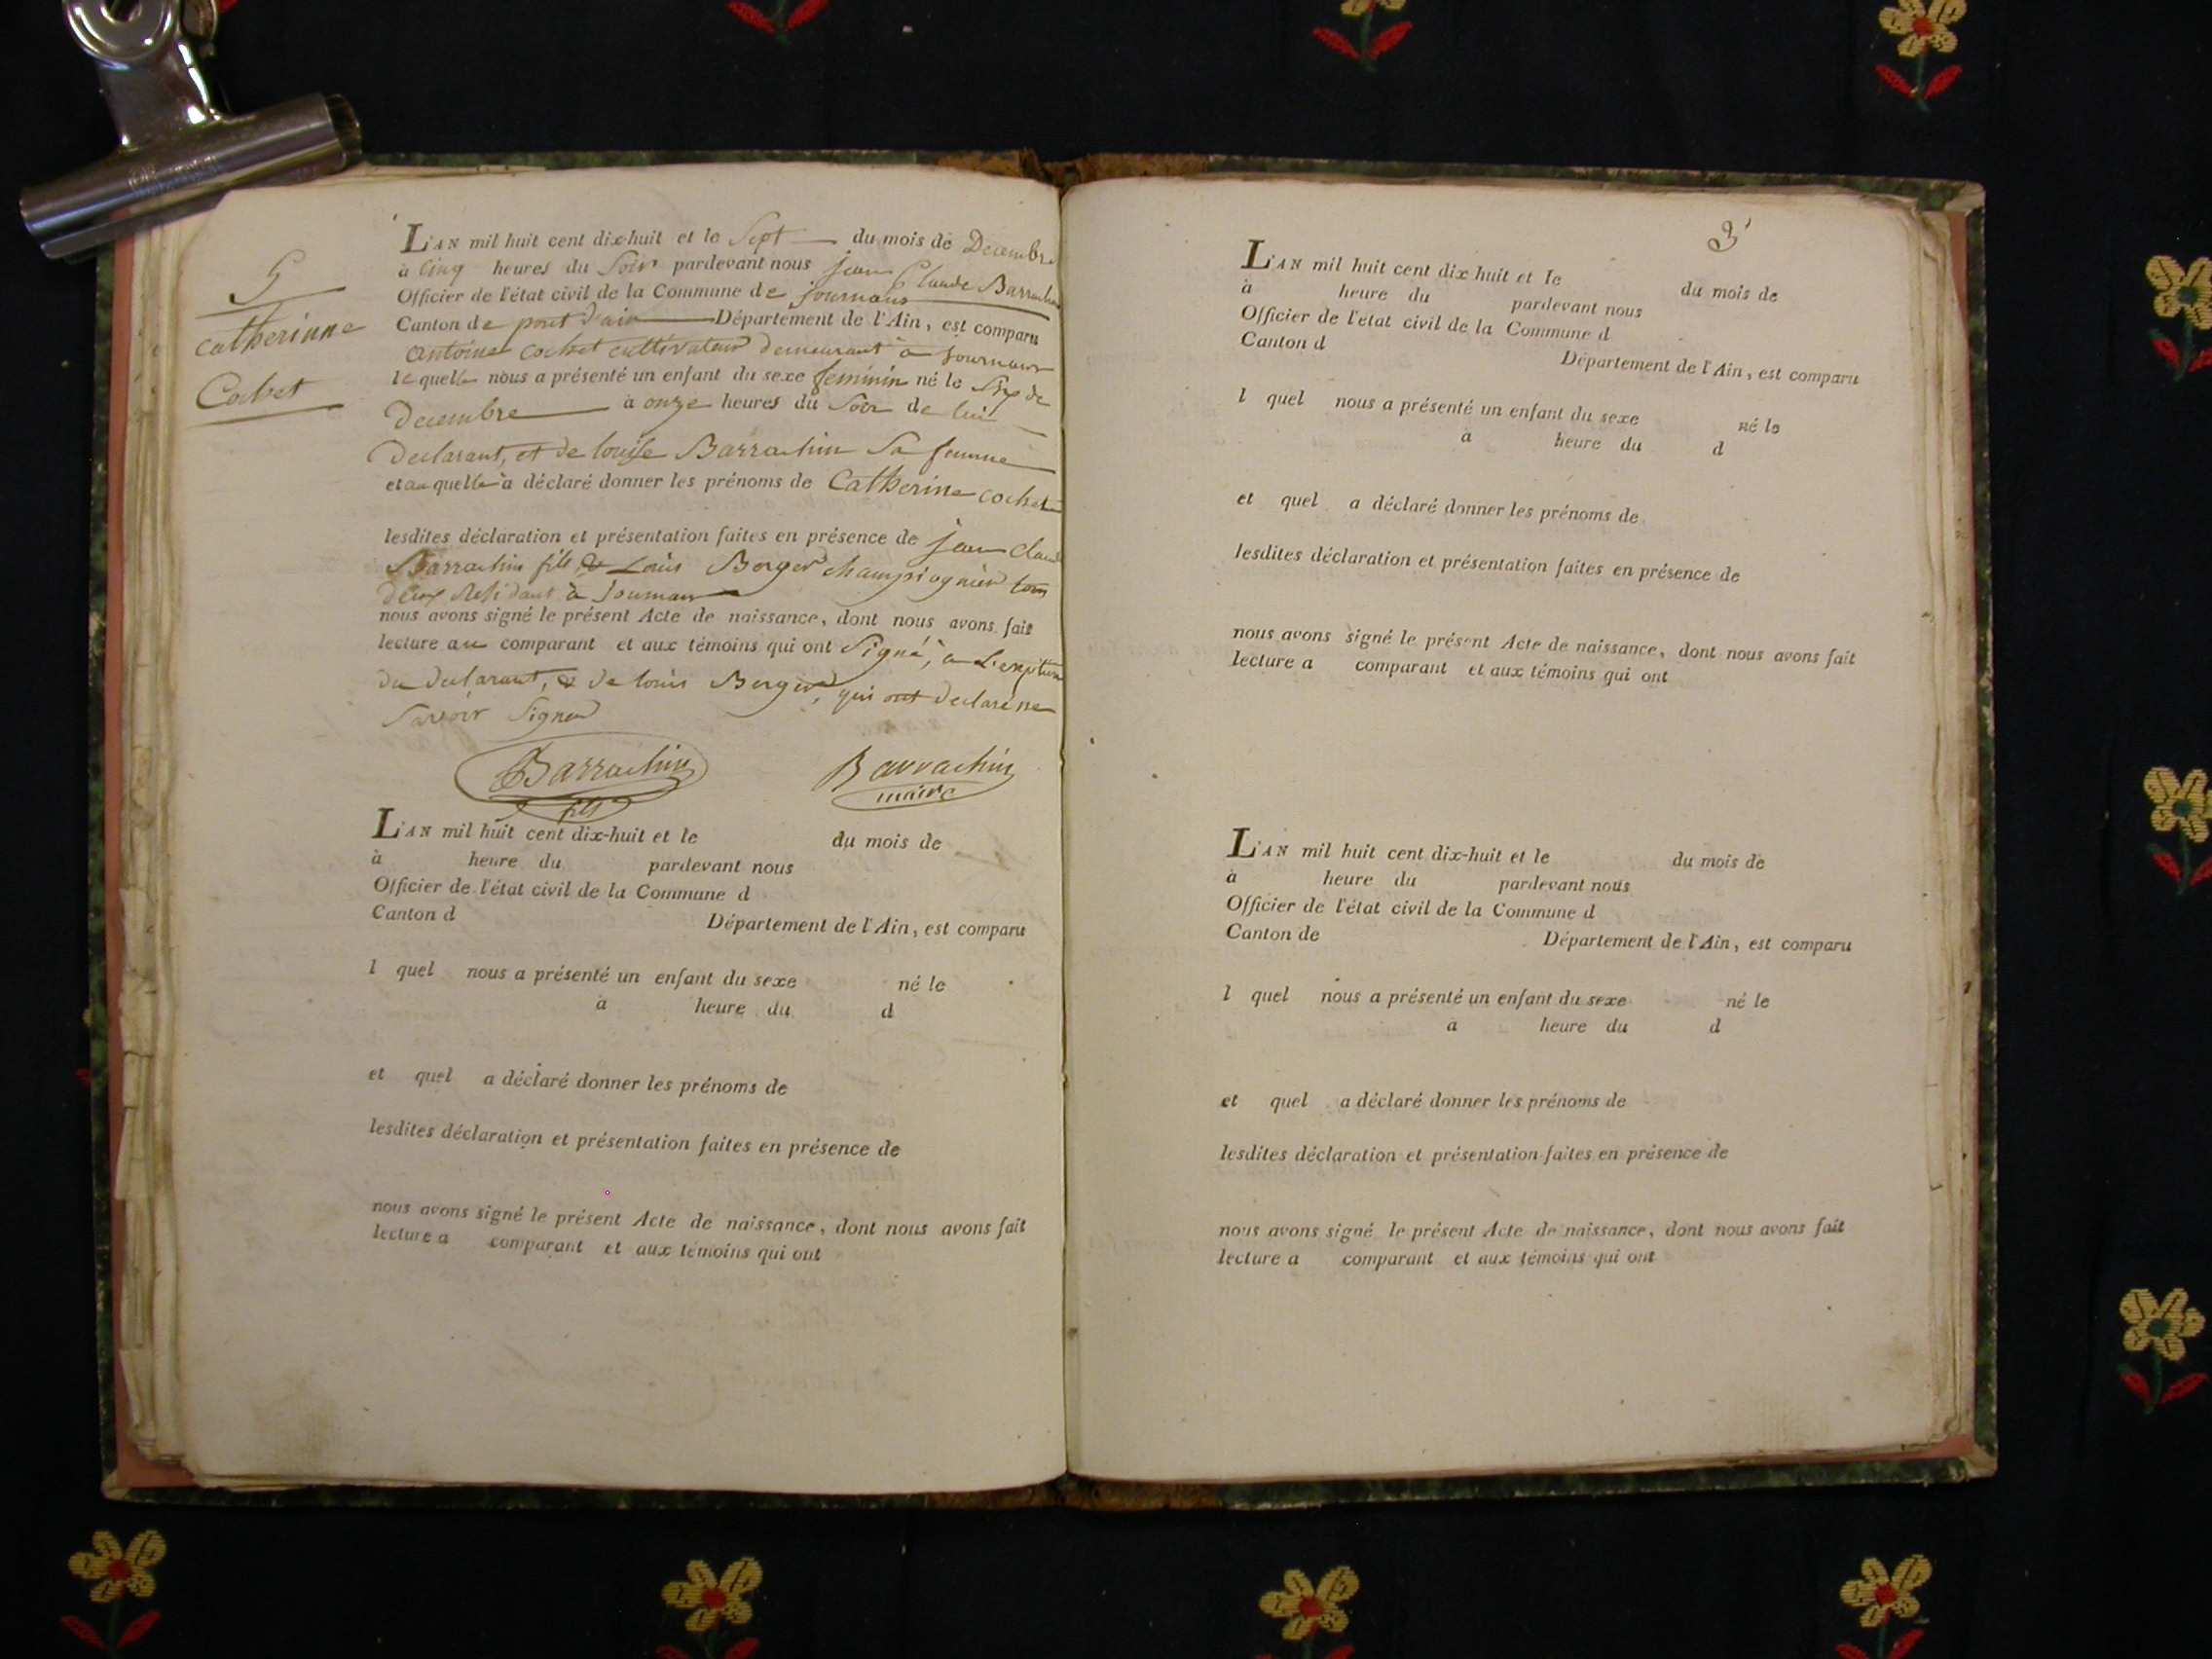 5
catherinne
Cochet
L'AN mil huit cent dix-huit et le Sept du mois de Decembre
à Cinq heures du Soir pardevant nous jean Claude Barrachin
Officier de l'état civil de la Commune de journans
Canton de pont d'ain Département de l'Ain, est comparu
antoine cochet cultivateur demeurant à journans
lequelle nous a présenté un enfant du sexe feminin né le Six de
Decembre à onze heures du Soir de lui
Declarant, et de louise Barrachin Sa femme
et au quelle à déclaré donner les prénoms de Catherine cochet
lesdites déclaration et présentation faites en présence de jean claude
Barrachin fils & Louis Berger tous
deux Residant à journans
nous avons signé le présent Acte de naissance, dont nous avons fait
lecture au comparant et aux témoins qui ont Signé, a L'exeption
du declarant, & de louis Berger, qui ont declaré ne
Savoir Signer
Barrachin fils
Barrachin maire
L'AN mil huit cent dix-huit et le du mois de
à heure du pardevant nous
Officier de l'état civil de la Commune d
Canton d Département de l'Ain, est comparu
l quel nous a présenté un enfant du sexe né le
à heure du d
et quel a déclaré donner les prénoms de
lesdites déclaration et présentation faites en présence de
nous avons signé le présent Acte de naissance, dont nous avons fait
lecture a comparant et aux témoins qui ont
3
L'AN mil huit cent dix huit et le du mois de
à heure du pardevant nous
Officier de l'état civil de la Commune d
Canton d Département de l'Ain, est comparu
l quel nous a présenté un enfant du sexe né le
à heure du d
et quel a déclaré donner les prénoms de
lesdites déclaration et présentation faites en présence de
nous avons signé le présent Acte de naissance, dont nous avons fait
lecture a comparant et aux témoins qui ont
L'AN mil huit cent dix-huit et le du mois de
à heure du pardevant nous
Officier de l'état civil de la Commune d
Canton de Département de l'Ain, est comparu
l quel nous a présenté un enfant du sexe né le
à heure du d
et quel a déclaré donner les prénoms de
lesdites déclaration et présentation faites en présence de
nous avons signé le présent Acte de naissance, dont nous avons fait
lecture a comparant et aux témoins qui ont